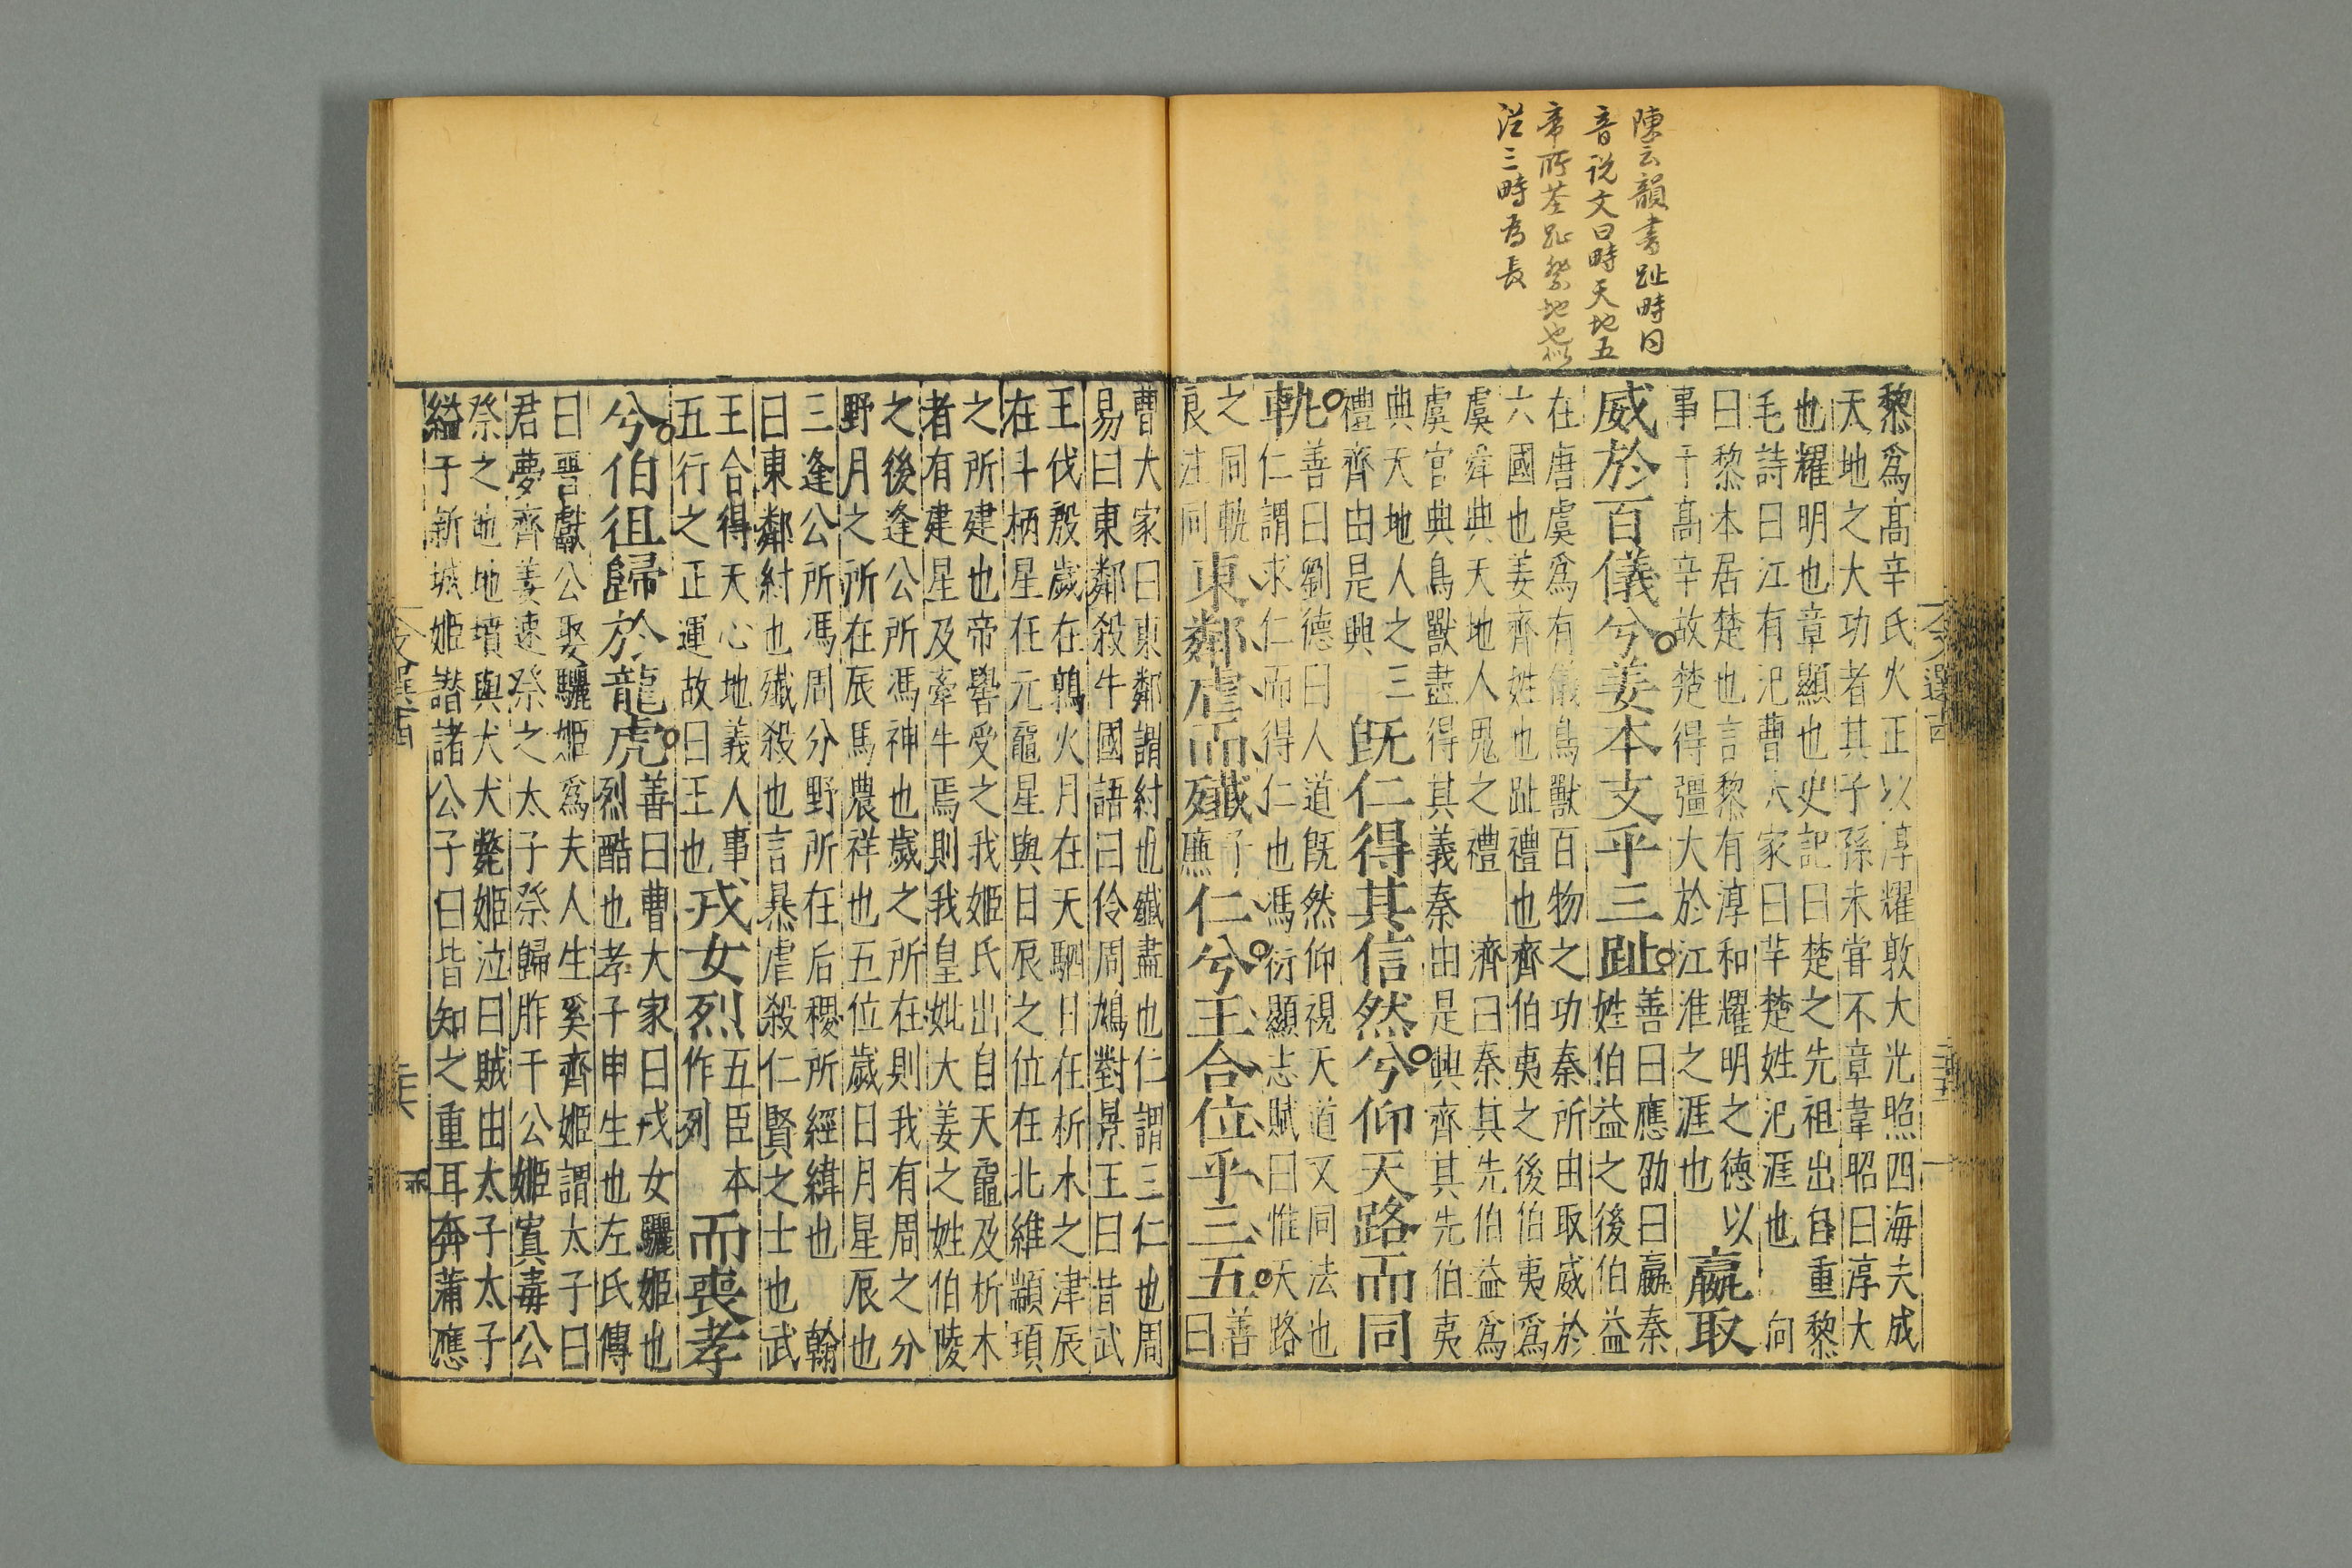 陳云韻書趾畤同
音说文曰畤天地五
帝所基址祭地也
注三畤為長
黎爲高辛氏火正以淳耀敦大光照四海夫成
天地之大功者其子孫未甞不章韋昭曰淳大
也耀明也章顯也史記曰楚之先祖出自重黎
毛詩曰江有汜曹大家曰羋楚姓汜涯也 向
曰黎本居楚也言黎有淳和耀明之德以
事于高辛故楚得彊大於江淮之涯也
嬴取
威於百儀兮姜本支乎三趾
善曰應劭曰嬴秦
姓伯益之後伯益
在唐虞爲有儀鳥獸百物之功秦所由取威於
六國也姜齊姓也趾禮也齊伯夷之後伯夷爲
虞舜典天地人鬼之禮 濟曰秦其先伯益爲
虞官典鳥獸盡得其義秦由是興齊其先伯夷
典天地人之三
禮齊由是興
旣仁得其信然兮仰天路而同
軌
善曰劉德曰人道旣然仰視天道又同法也
仁謂求仁而得仁也馮衍顯志賦曰惟天路
之同軌
良注同
東鄰虐而殲
子
廉
仁兮王合位乎三五
善
曰
曹大家曰東鄰謂紂也殲盡也仁謂三仁也周
易曰東鄰殺牛國語曰伶周鳩對景王曰昔武
王伐殷歲在鶉火月在天駟日在析木之津辰
在斗柄星在元黿星與日辰之位在北維顓頊
之所建也帝嚳受之我姬氏出自天黿及析木
者有建星及牽牛焉則我皇妣大姜之姓伯陵
之後逢公所馮神也歲之所在則我有周之分
野月之所在辰馬農祥也五位歲日月星辰也
三逢公所馮周分野所在后稷所經緯也 翰
曰東鄰紂也殲殺也言暴虐殺仁賢之士也武
王合得天心地義人事
五行之正運故曰王也
戎女烈
五臣本
作列
而喪孝
兮伯徂歸於龍虎
善曰曹大家曰戎女驪姬也
烈酷也孝子申生也左氏傳
曰晋獻公娶驪姬爲夫人生奚齊姬謂太子曰
君夢齊姜速祭之太子祭歸胙于公姬寘毒公
祭之地地墳與犬犬斃姬泣曰賊由太子太子
縊于新城姬譖諸公子曰皆知之重耳奔蒲應